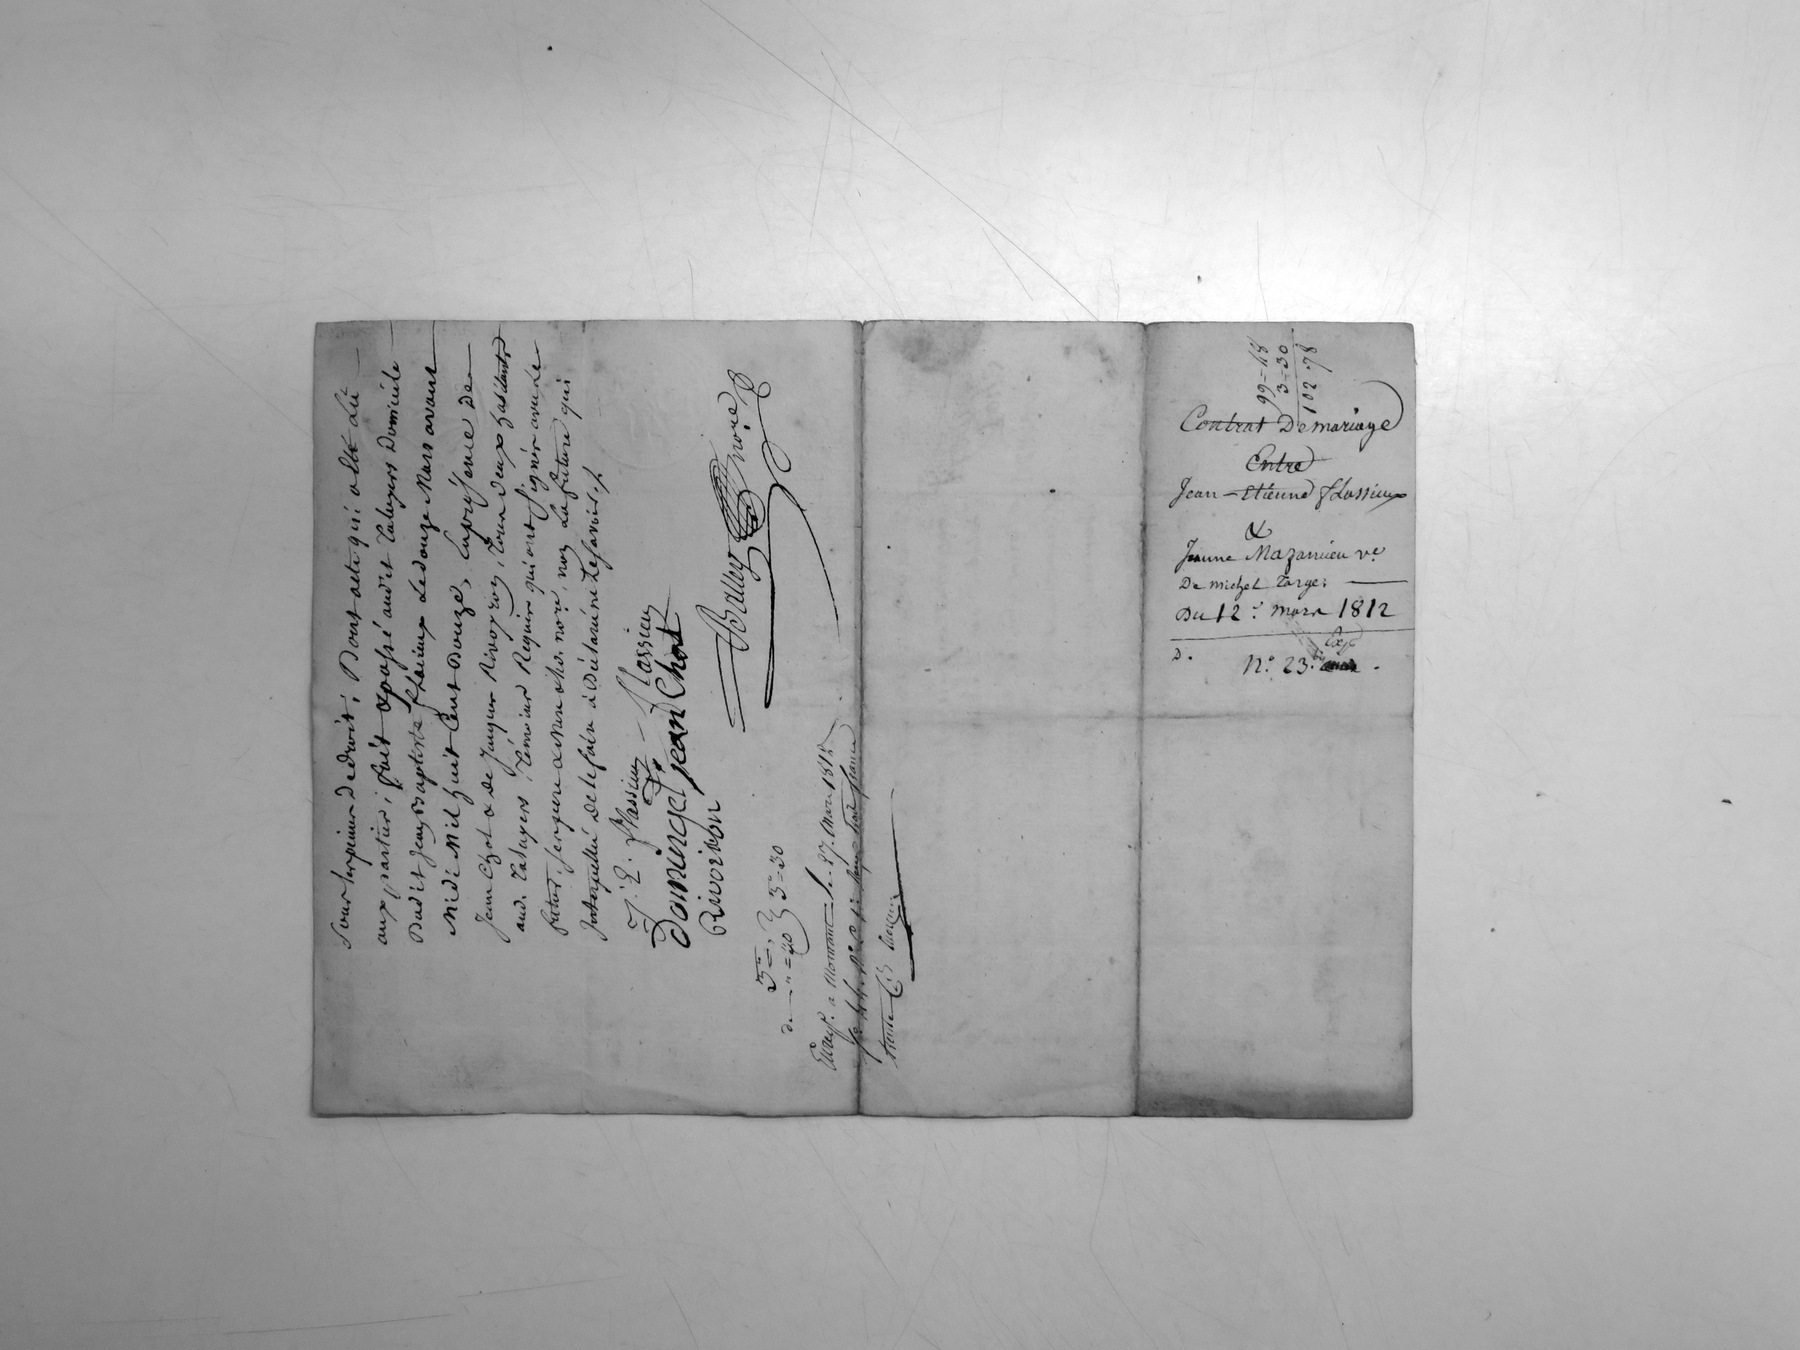 Sous les peines de droit; Dont acte qui a été Lû
aux parties; fait & passé audit Taluyers Domicile
Dudit Jean Baptiste Flassieux Le douze Mars avant
Midi Mil huit Cent Douze, En présence de
Jean Chot & de Jaques Rivoyron, tous deux habitants
aud. Taluyers, Témoins Requis qui ont signé avec le
futur, son pere & Nous dho. nore, non La future qui
Interpellée de le faire a Déclaré ne le savoir./.
J. E. flassieux flassieux
Jean Chot
Balley nore
3 = 30
Enregé. a Mornant Le 27. Mars 1812
99 = 48
3 = 30
102 78
Contrat De mariage
Entre
Jean - Etienne flassieux
&
Jeanne Mazancieu ve.
De michel Targe;
Du 12. mars 1812
D.
N.o 23.